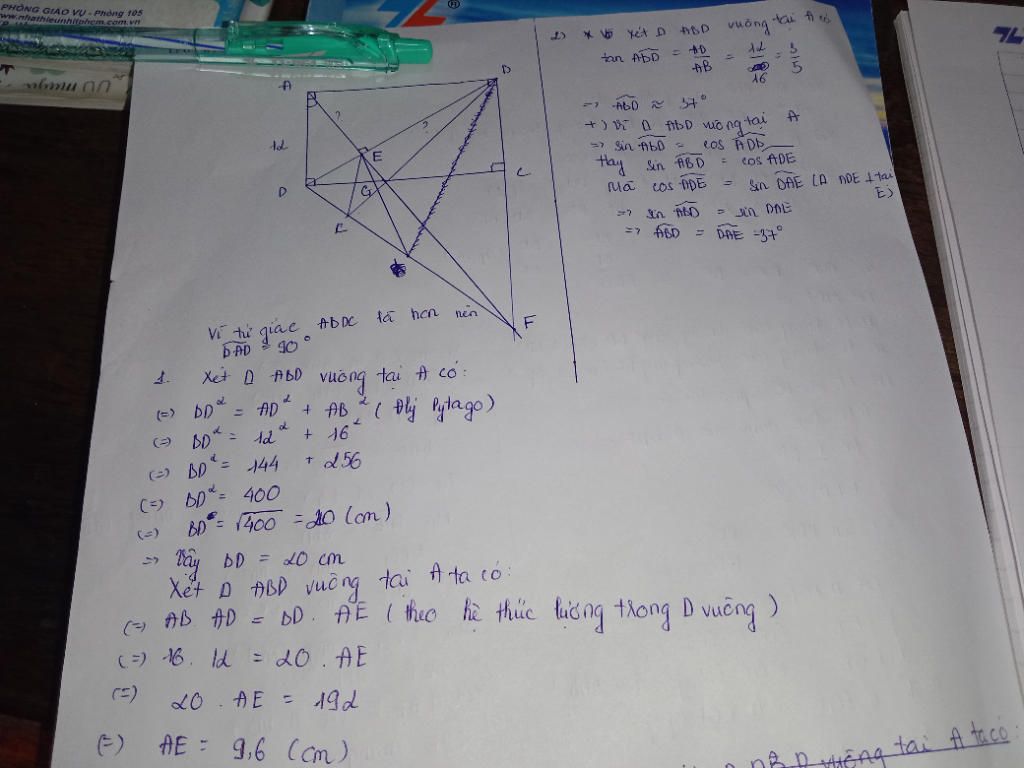 PHÒNG GIÁO VỤ - Phòng 105
www.nhathieunhitphcm.com.vn
A
B
12
?
?
E
D
G
C
F
Vì tứ giác ABDC là hcn nên
BAD = 90°
1. Xét Δ ABD vuông tại A có:
(=) BD² = AD² + AB² (Đlý Pytago)
(=) BD² = 12² + 16²
(=) BD² = 144 + 256
(=) BD² = 400
(=) BD = √400 = 20 (cm)
=> Vậy BD = 20 cm
Xét Δ ABD vuông tại A ta có:
(=) AB AD = BD. AE (theo hệ thức lượng trong Δ vuông)
(=) 16. 12 = 20. AE
(=) 20. AE = 192
(=) AE = 9,6 (cm)
2) Xét Δ ABD vuông tại A có
tan ABD = AD/AB = 12/16 = 3/5
=> ABD ≈ 37°
+) Vì Δ ABD vuông tại A
=> sin ABD = cos ADB
Hay sin ABD = cos ADE
Mà cos ADE = sin DAE (Δ ADE ⊥ tại E)
=> sin ABD = sin DAE
=> ABD = DAE = 37°
vuông tại A ta có: